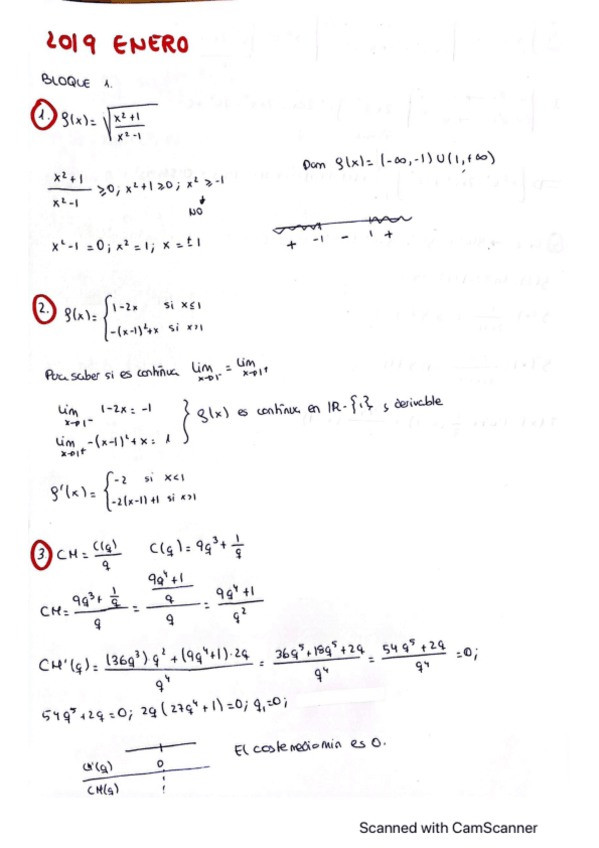 2019 ENERO
BLOQUE 1.
1. f(x)= √((x²+1)/(x²-1))
(x²+1)/(x²-1) ≥0; x²+1≥0; x²≥-1
NO
Dom f(x)= (-∞,-1) ∪ (1,+∞)
x²-1=0; x²=1; x=±1
+ -1 - 1 +
2. f(x)= { 1-2x si x≤1
-(x-1)²+x si x>1
Para saber si es continua lim x→1⁻ = lim x→1⁺
lim x→1⁻ 1-2x = -1
lim x→1⁺ -(x-1)²+x = 1 } f(x) es continua en IR-{1} y derivable
f'(x)= { -2 si x<1
-2(x-1)+1 si x>1
3 CM= C(q)/q C(q)=9q³+1/q
CM= (9q³+1/q)/q = ((9q⁴+1)/q)/q = (9q⁴+1)/q²
CM'(q)= ((36q³)q²+(9q⁴+1)·2q)/q⁴ = (36q⁵+18q⁵+2q)/q⁴ = (54q⁵+2q)/q⁴ =0;
54q⁵+2q=0; 2q(27q⁴+1)=0; q₁=0;
El coste medio min es 0.
C'(q) 0
CM(q)
Scanned with CamScanner